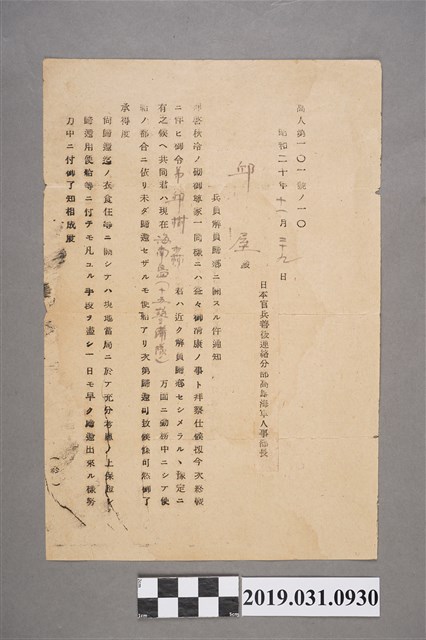 高人第一〇一號ノ一〇
昭和二十年十一月三十九日
日本官兵善後連絡分部高雄海軍人事部長
邱 屋 殿
兵員解員歸鄉ニ關スル件通知
拜啓秋冷ノ御尊家一同樣ニハ益々御清康ノ事ト拜察仕候扨今次終戰
ニ伴ヒ御令弟邱樹 君ハ近ク解員歸鄉セシメラルヽ豫定ニ
有之候ヘ共同君ハ現在海南島(十五警 )方面ニ勤務中ニシテ便
船ノ都合ニ依リ未ダ歸還セザルモ便船アリ次第歸還可致候條可然御了
承得度
尚歸還迄ノ衣食住等ニ關シテハ現地當局ニ於テ充分考慮ノ上保護シ
歸還用便船等ニ付テモ凡ユル手段ヲ盡シ一日モ早ク歸還出來ル樣努
力中ニ付御了知相成度
(終)
2019.031.0930